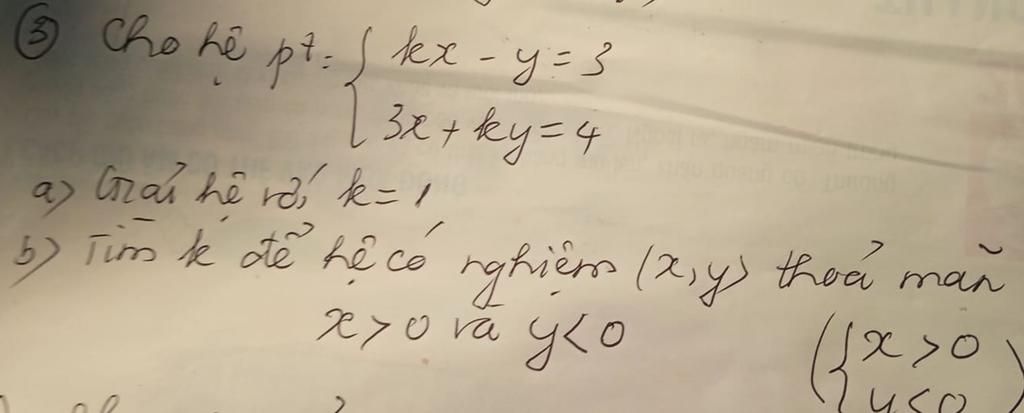 ③ Cho hệ pt: { kx - y = 3
3x + ky = 4
a) Giải hệ với k = 1
b) Tìm k để hệ có nghiệm (x, y) thoả mãn
x > 0 và y < 0 ( { x > 0
y < 0 )